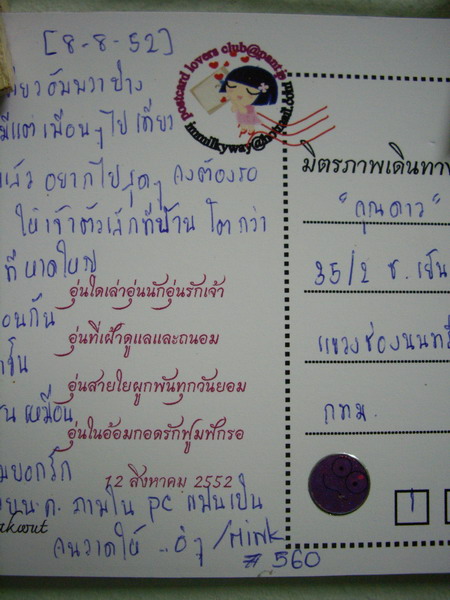 [8-8-52]
postcard lovers club@pantip
immilkyway@hotmail.com
เที่ยวอัมพวาบ้าง
มีแต่เพื่อนๆ ไปเที่ยว
แล้ว อยากไปสุดๆ คงต้องรอ
ให้เจ้าตัวเล็กที่บ้าน โตกว่า
ที่หาดใหญ่
อุ่นใดเล่าอุ่นนักอุ่นรักเจ้า
อุ่นที่เฝ้าดูแลและถนอม
อุ่นสายใยผูกพันทุกวันยอม
เหมือน
อุ่นในอ้อมกอดรักฟูมฟักรอ
บอกรัก
12 สิงหาคม 2552
ภายใน pc แฟนเป็น
คนวาดให้ .. อิๆ /Mink
# 560
มิตรภาพเดินทาง
"คุณดาว"
35/2 ซ. เย็น
แขวงช่องนนทรี
กทม.
1